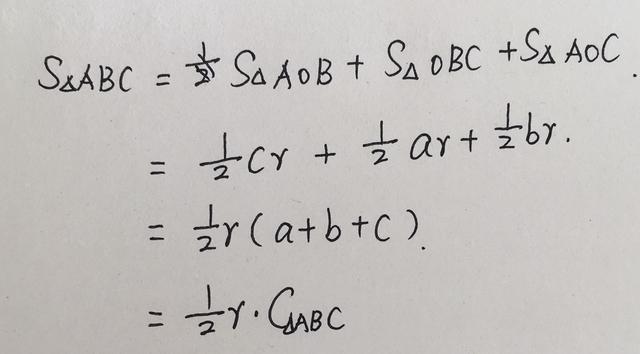 S△ABC = S△AOB + S△OBC + S△AOC.
= 1/2 cr + 1/2 ar + 1/2 br.
= 1/2 r (a+b+c).
= 1/2 r · C△ABC